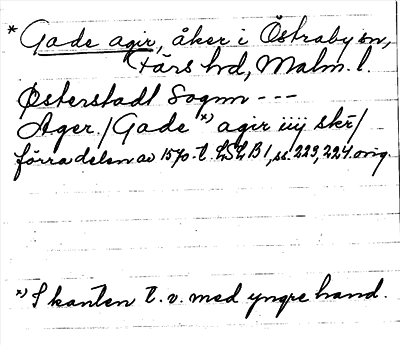 * Gade agir, åker i Östraby sn,
Färs hd, Malm. l.
Østerstadt Sognn ---
Ager. / Gade *) agir iiij skr̄ /
förra delen av 1570-t. LSLB 1, ss. 223, 224. orig.
*) I kanten t. v. med yngre hand.